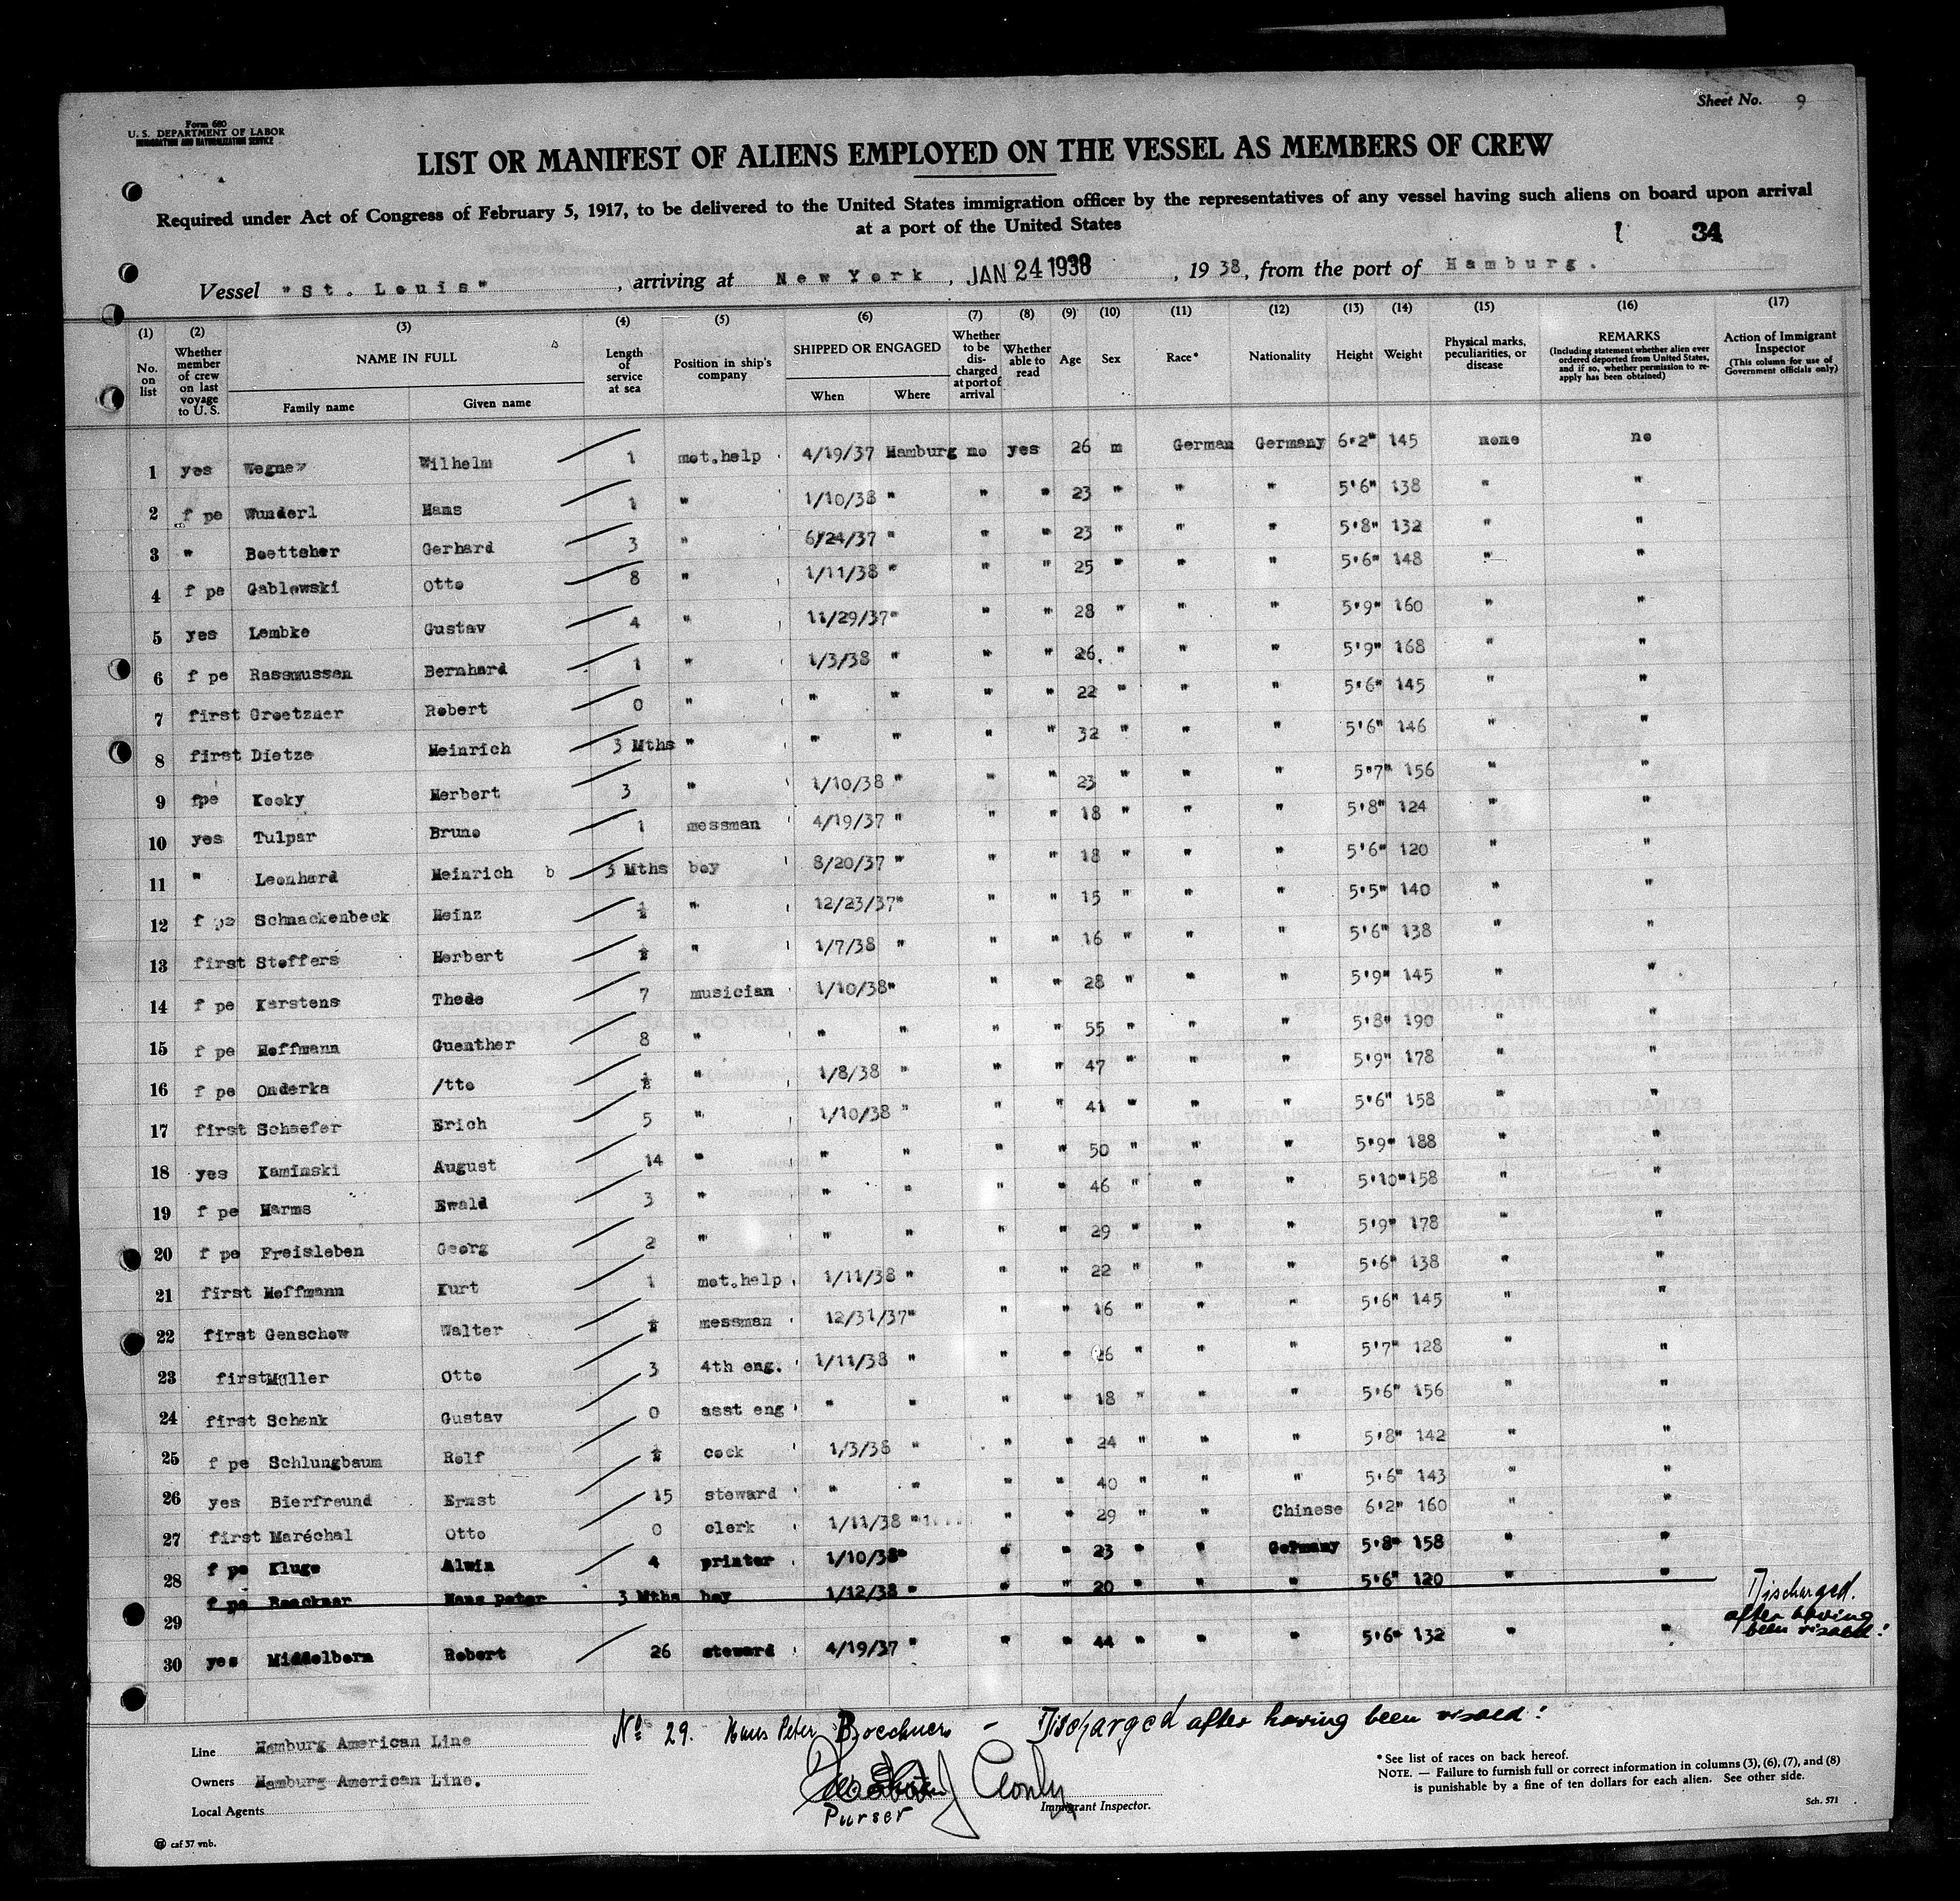 Sheet No. 9
Form 680
U. S. DEPARTMENT OF LABOR
IMMIGRATION AND NATURALIZATION SERVICE
LIST OR MANIFEST OF ALIENS EMPLOYED ON THE VESSEL AS MEMBERS OF CREW
Required under Act of Congress of February 5, 1917, to be delivered to the United States immigration officer by the representatives of any vessel having such aliens on board upon arrival
at a port of the United States
34
Vessel "St. Louis", arriving at New York, JAN 24 1938, 1938, from the port of Hamburg.
(1) (2) (3) (4) (5) (6) (7) (8) (9) (10) (11) (12) (13) (14) (15) (16) (17)
No. on list
Whether member of crew on last voyage to U. S.
NAME IN FULL
Family name Given name
Length of service at sea
Position in ship's company
SHIPPED OR ENGAGED
When Where
Whether to be discharged at port of arrival
Whether able to read
Age Sex Race* Nationality Height Weight
Physical marks, peculiarities, or disease
REMARKS
(Including statement whether alien ever ordered deported from United States, and if so, whether permission to reapply has been obtained)
Action of Immigrant Inspector
(This column for use of Government officials only)
1 yes Wegner Wilhelm 1 mot.help 4/19/37 Hamburg no yes 26 m German Germany 6'2" 145 none no
2 f pe Wunderl Hans 1 " 1/10/38 " " " 23 " " " 5'6" 138 " "
3 " Boettcher Gerhard 3 " 6/24/37 " " " 23 " " " 5'8" 132 " "
4 f pe Gablowski Otto 8 " 1/11/38 " " " 25 " " " 5'6" 148 " "
5 yes Lembke Gustav 4 " 11/29/37 " " " 28 " " " 5'9" 160 " "
6 f pe Rassmussen Bernhard 1 " 1/3/38 " " " 26. " " " 5'9" 168 " "
7 first Groetzner Robert 0 " " " " " 22 " " " 5'6" 145 " "
8 first Dietze Heinrich 3 Mths " " " " " 32 " " " 5'6" 146 " "
9 fpe Kooky Herbert 3 " 1/10/38 " " " 23 " " " 5'7" 156 " "
10 yes Tulpar Bruno 1 messman 4/19/37 " " " 18 " " " 5'8" 124 " "
11 " Leonhard Heinrich b 3 Mths boy 8/20/37 " " " 18 " " " 5'6" 120 " "
12 f pe Schnackenbeck Heinz ½ " 12/23/37 " " " 15 " " " 5'5" 140 " "
13 first Steffers Herbert ½ " 1/7/38 " " " 16 " " " 5'6" 138 " "
14 f pe Karstens Thede 7 musician 1/10/38 " " " 28 " " " 5'9" 145 " "
15 f pe Hoffmann Guenther 8 " " " " " 55 " " " 5'8" 190 " "
16 f pe Onderka /tto ½ " 1/8/38 " " " 47 " " " 5'9" 178 " "
17 first Schaefer Erich 5 " 1/10/38 " " " 41 " " " 5'6" 158 " "
18 yes Kaminski August 14 " " " " " 50 " " " 5'9" 188 " "
19 f pe Harms Ewald 3 " " " " " 46 " " " 5'10" 158 " "
20 f pe Freisleben Georg 2 " " " " " 29 " " " 5'9" 178 " "
21 first Hoffmann Kurt 1 mot.help 1/11/38 " " " 22 " " " 5'6" 138 " "
22 first Genschow Walter ½ messman 12/31/37 " " " 16 " " " 5'6" 145 " "
23 first Müller Otto 3 4th eng. 1/11/38 " " " 26 " " " 5'7" 128 " "
24 first Schenk Gustav 0 asst eng " " " " 18 " " " 5'6" 156 " "
25 f pe Schlungbaum Rolf ½ cook 1/3/38 " " " 24 " " " 5'8" 142 " "
26 yes Bierfreund Ernst 15 steward " " " " 40 " " " 5'6" 143 " "
27 first Maréchal Otto 0 clerk 1/11/38 " " " 29 " " Chinese 6'2" 160 " "
28 f pe Kluge Alwin 4 printer 1/10/38 " " " 23 " " Germany 5'8" 158 " "
29 f pe Boeckner Hans Peter 3 Mths boy 1/12/38 " " " 20 " " " 5'6" 120 " " Discharged. after having been visaed!
30 yes Middelborn Robert 26 steward 4/19/37 " " " 44 " " " 5'6" 132 " "
No 29. Hans Peter Boeckner - Discharged after having been visaed!
Line Hamburg American Line
Owners Hamburg American Line.
Local Agents
Purser
Immigrant Inspector.
* See list of races on back hereof.
NOTE. — Failure to furnish full or correct information in columns (3), (6), (7), and (8)
is punishable by a fine of ten dollars for each alien. See other side.
Sch. 571
caf 37 vnb.